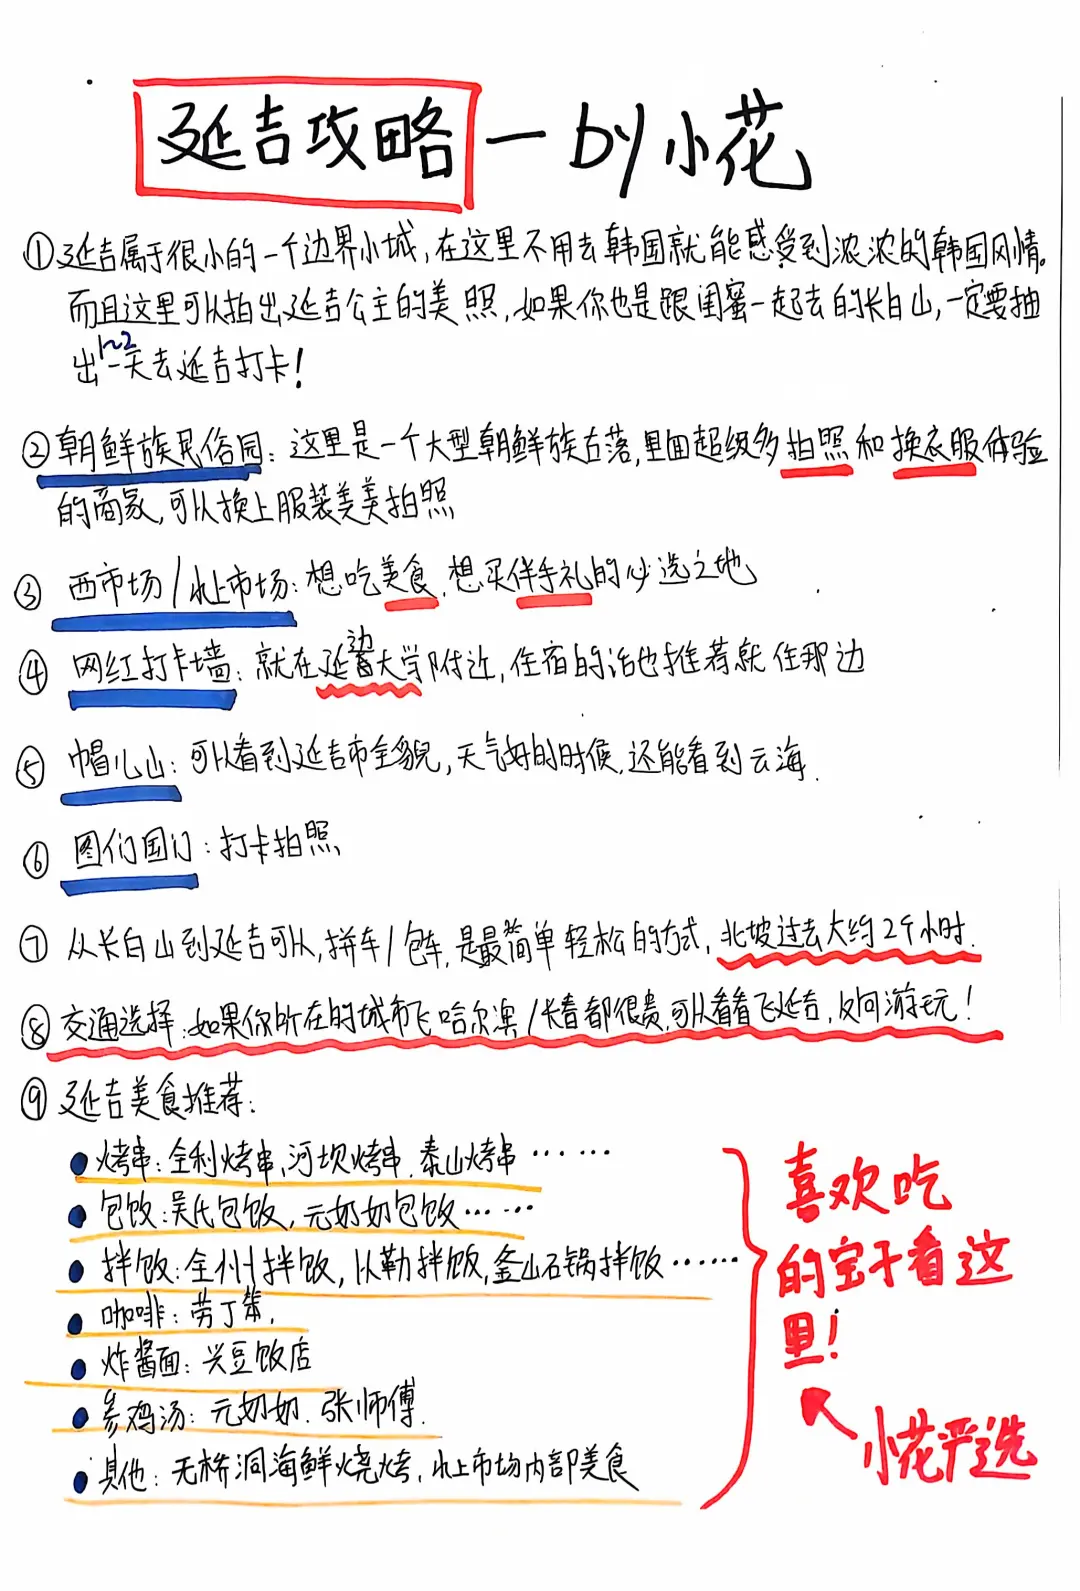 延吉攻略 — by 小花
① 延吉属于很小的一个边界小城,在这里不用去韩国就能感受到浓浓的韩国风情。
而且这里可以拍出延吉公主的美照,如果你也是跟闺蜜一起去的长白山,一定要抽
出1~2天去延吉打卡!
② 朝鲜族民俗园: 这里是一个大型朝鲜族古落,里面超级多拍照和换衣服体验
的商家,可以换上服装美美拍照
③ 西市场/水上市场: 想吃美食,想买伴手礼的必选之地
④ 网红打卡墙: 就在延边大学附近,住宿的话也推荐就住那边
⑤ 帽儿山: 可以看到延吉市全貌,天气好的时候,还能看到云海.
⑥ 图们国门: 打卡拍照
⑦ 从长白山到延吉可以,拼车/包车,是最简单轻松的方式,北坡过去大约2个小时.
⑧ 交通选择: 如果你所在的城市飞哈尔滨/长春都很贵,可以看看飞延吉,反向游玩!
⑨ 延吉美食推荐:
烤串: 全利烤串,河坝烤串.泰山烤串……
包饭: 吴氏包饭,元奶奶包饭……
拌饭: 全州拌饭,以勒拌饭,釜山石锅拌饭……
咖啡: 劳丁笨,
炸酱面: 兴豆饭店
参鸡汤: 元奶奶.张师傅.
其他: 无桥洞海鲜烧烤,水上市场内部美食
喜欢吃
的宝子看这
里!
小花严选